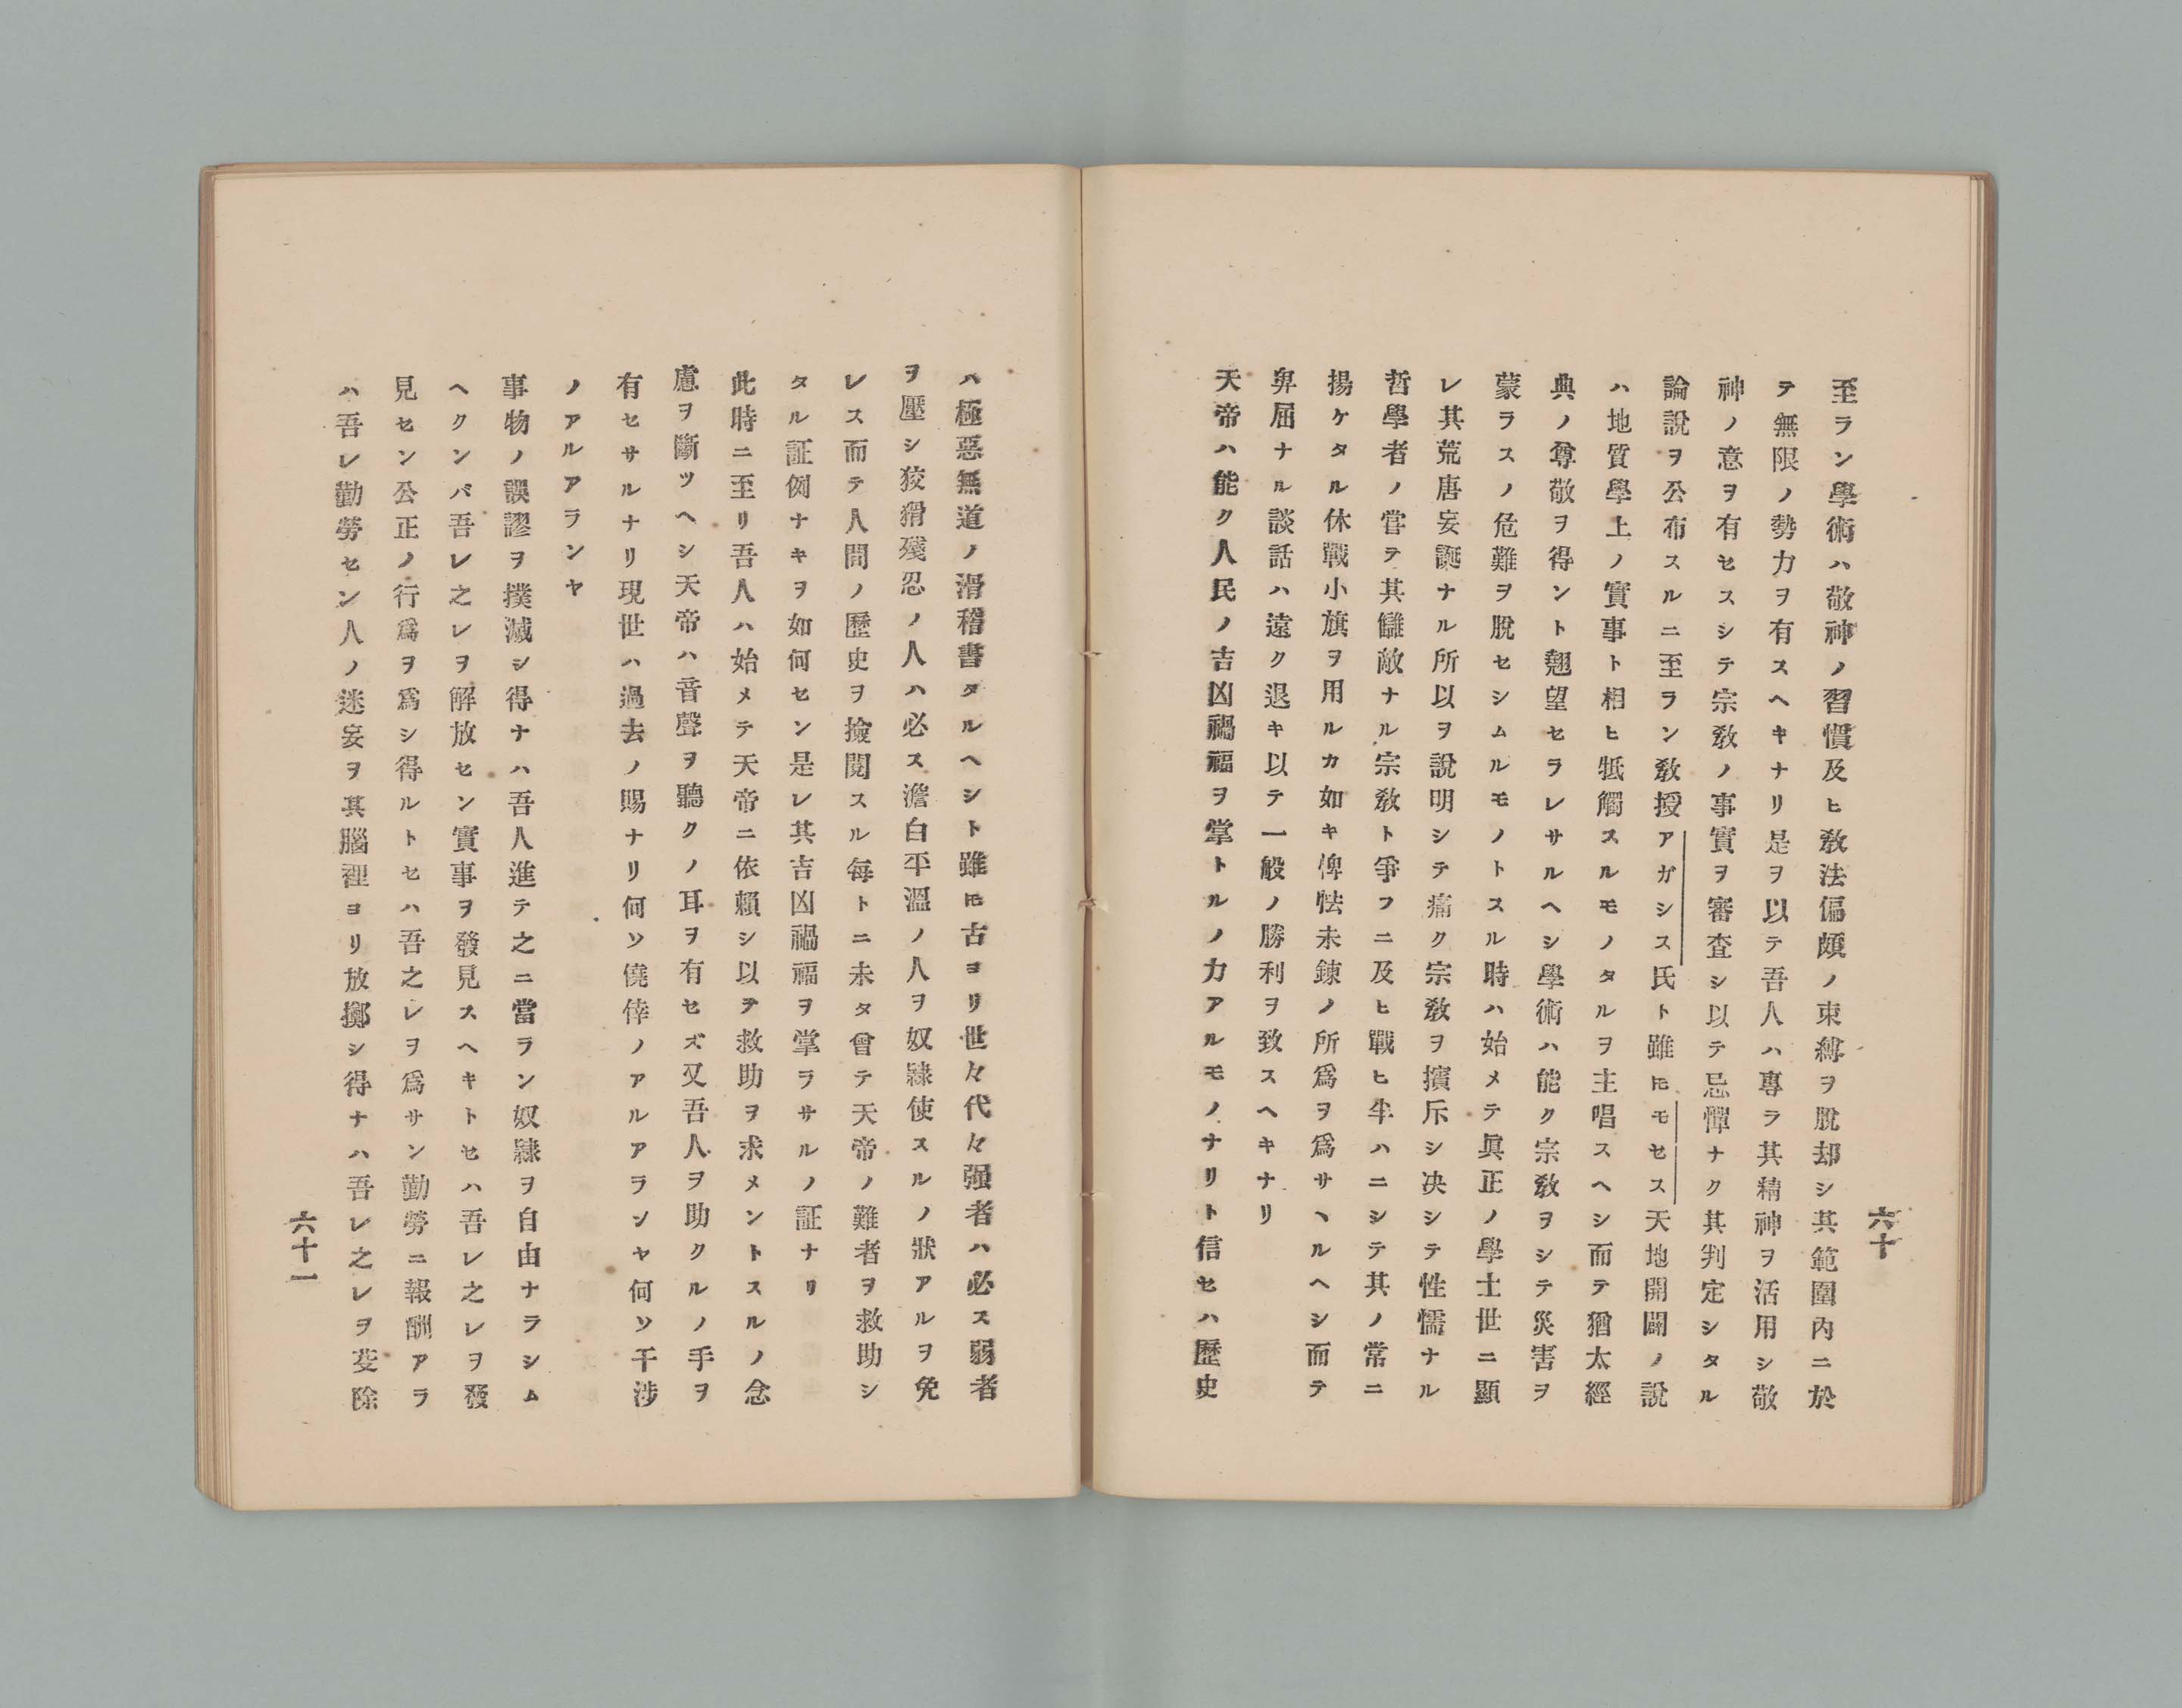 六十
至ラン學術ハ敬神ノ習慣及ヒ敎法偏頗ノ束縛ヲ脫却シ其範圍內ニ於
テ無限ノ勢力ヲ有スヘキナリ是ヲ以テ吾人ハ專ラ其精神ヲ活用シ敬
神ノ意ヲ有セスシテ宗敎ノ事實ヲ審査シ以テ忌憚ナク其判定シタル
論說ヲ公布スルニ至ラン敎授アガシス氏ト雖𪜈モセス天地開闢ノ說
ハ地質學上ノ實事ト相ヒ牴觸スルモノタルヲ主唱スヘシ而テ猶太經
典ノ尊敬ヲ得ント翹望セラレサルヘシ學術ハ能ク宗敎ヲシテ災害ヲ
蒙ラスノ危難ヲ脫セシムルモノトスル時ハ始メテ眞正ノ學士世ニ顯
レ其荒唐妄誕ナル所以ヲ說明シテ痛ク宗敎ヲ擯斥シ決シテ性懦ナル
哲學者ノ嘗テ其讎敵ナル宗敎ト爭フニ及ヒ戰ヒ半ハニシテ其ノ常ニ
揚ケタル休戰小旗ヲ用ルカ如キ俾怯未鍊ノ所爲ヲ爲サヽルヘシ而テ
卑屈ナル談話ハ遠ク退キ以テ一般ノ勝利ヲ致スヘキナリ
天帝ハ能ク人民ノ吉凶禍福ヲ掌トルノ力アルモノナリト信セハ歷史
ハ極惡無道ノ滑稽書タルヘシト雖𪜈古ヨリ世々代々强者ハ必ス弱者
ヲ壓シ狡猾殘忍ノ人ハ必ス澹白平溫ノ人ヲ奴隷使スルノ狀アルヲ免
レス而テ人間ノ歷史ヲ撿閱スル每トニ未タ曾テ天帝ノ難者ヲ救助シ
タル証例ナキヲ如何セン是レ其吉凶禍福ヲ掌ラサルノ証ナリ
此時ニ至リ吾人ハ始メテ天帝ニ依賴シ以テ救助ヲ求メントスルノ念
慮ヲ斷ツヘシ天帝ハ音聲ヲ聽クノ耳ヲ有セズ又吾人ヲ助クルノ手ヲ
有セサルナリ現世ハ過去ノ賜ナリ何ソ僥倖ノアルアランヤ何ソ干涉
ノアルアランヤ
事物ノ誤謬ヲ撲滅シ得ナハ吾人進テ之ニ當ラン奴隷ヲ自由ナラシム
ヘクンバ吾レ之レヲ解放セン實事ヲ發見スヘキトセハ吾レ之レヲ發
見セン公正ノ行爲ヲ爲シ得ルトセハ吾之レヲ爲サン勤勞ニ報酬アラ
ハ吾レ勸勞セン人ノ迷妄ヲ其腦裡ヨリ放擲シ得ナハ吾レ之レヲ芟除
六十一